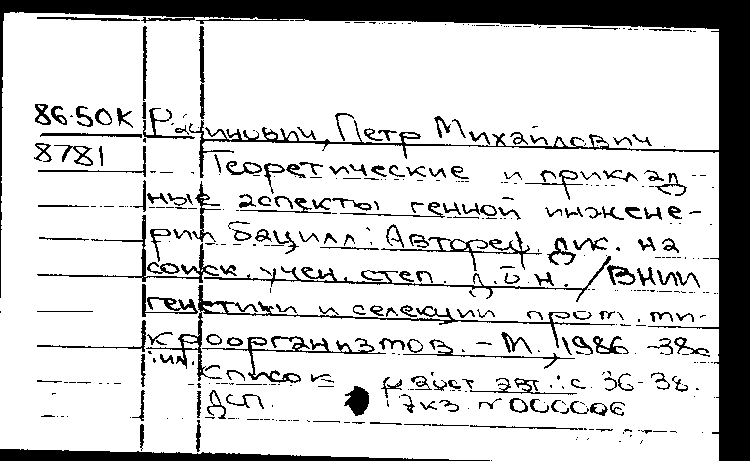 86-50К Рабинович, Петр Михайлович
8781 Теоретические и приклад-
ные аспекты генной инжене-
рии бацилл: Автореф. дис. на
соиск. учен. степ. д.б.н. / ВНИИ
генетики и селекции пром. ми-
кроорганизмов. - М., 1986. - 38с.
ил.
Список работ авт.: с. 36-38.
ДСП. Экз. N 000006